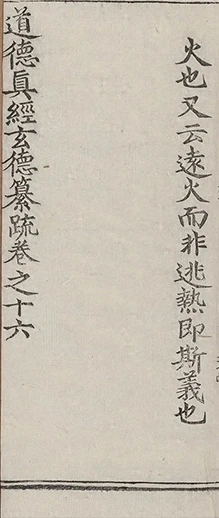 火也又云遠火而非逃熱即斯義也
道德真經玄德纂疏卷之十六